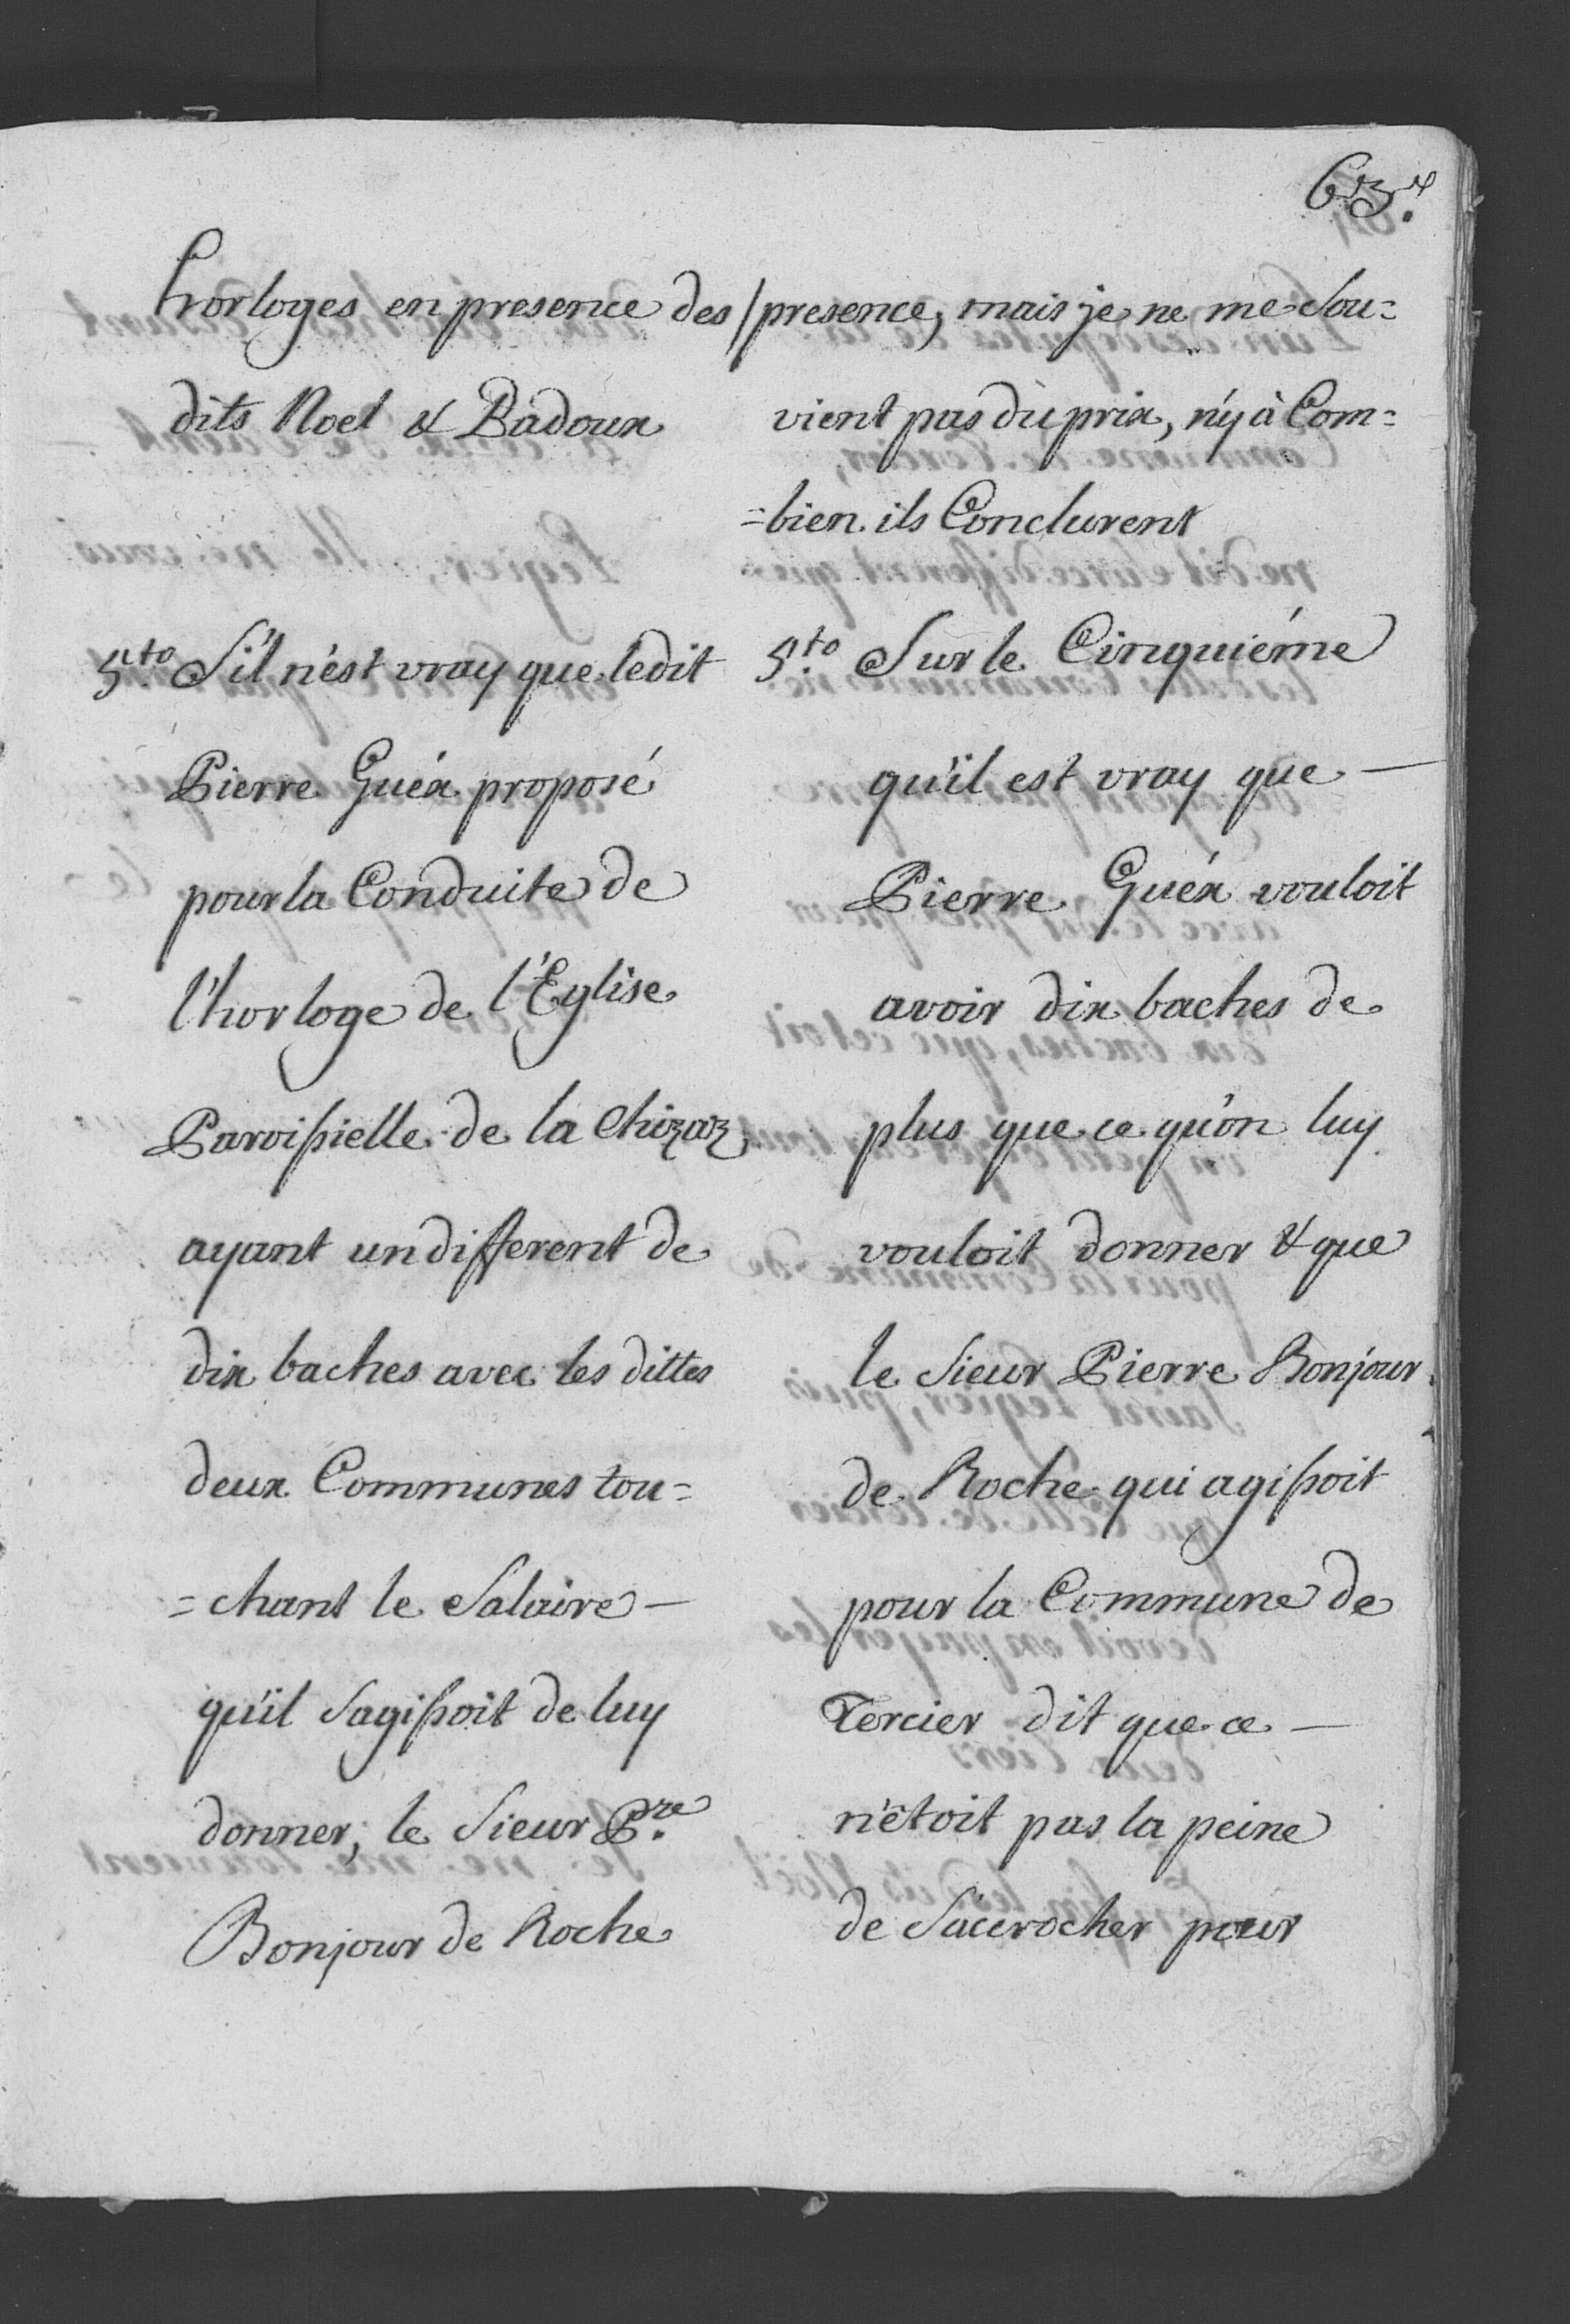 63.
horloges en presence des
dits Noel & Badoux
5.to S'il n'est vray que ledit
Pierre Guéx proposé
pour la Conduite de
l'horloge de l'Eglise
Paroissielle de la Chizaz
ayant un different de
dix baches avec les dittes
deux Communes tou=
=chant le Salaire —
qu'il s'agissoit de luy
donner, le Sieur P.re
Bonjour de Roche
presence, mais je ne me Sou=
vient pas du prix, n'y à Com=
=bien ils Conclurent
5.to Sur le Cinquiéme
qu'il est vray que —
Pierre Guéx vouloit
avoir dix baches de
plus que ce qu'on luy
vouloit donner & que
le Sieur Pierre Bonjour
de Roche qui agissoit
pour la Commune de
Tercier dit que ce —
n'étoit pas la peine
de S'accrocher pour